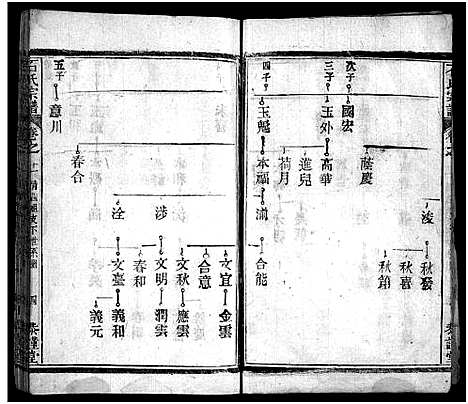 浚
秋發
秋喜
秋節
蔭慶
次子
國宏
三子
玉外
高華
進兒
荷月
四子
玉魁
本福
湔
合能
文宜
金雲
合意
文秋
應雲
涉
文明
潤雲
春和
洤
文臺
義和
義元
春合
五子
意川
石氏宗譜
卷之
四
恭謹堂